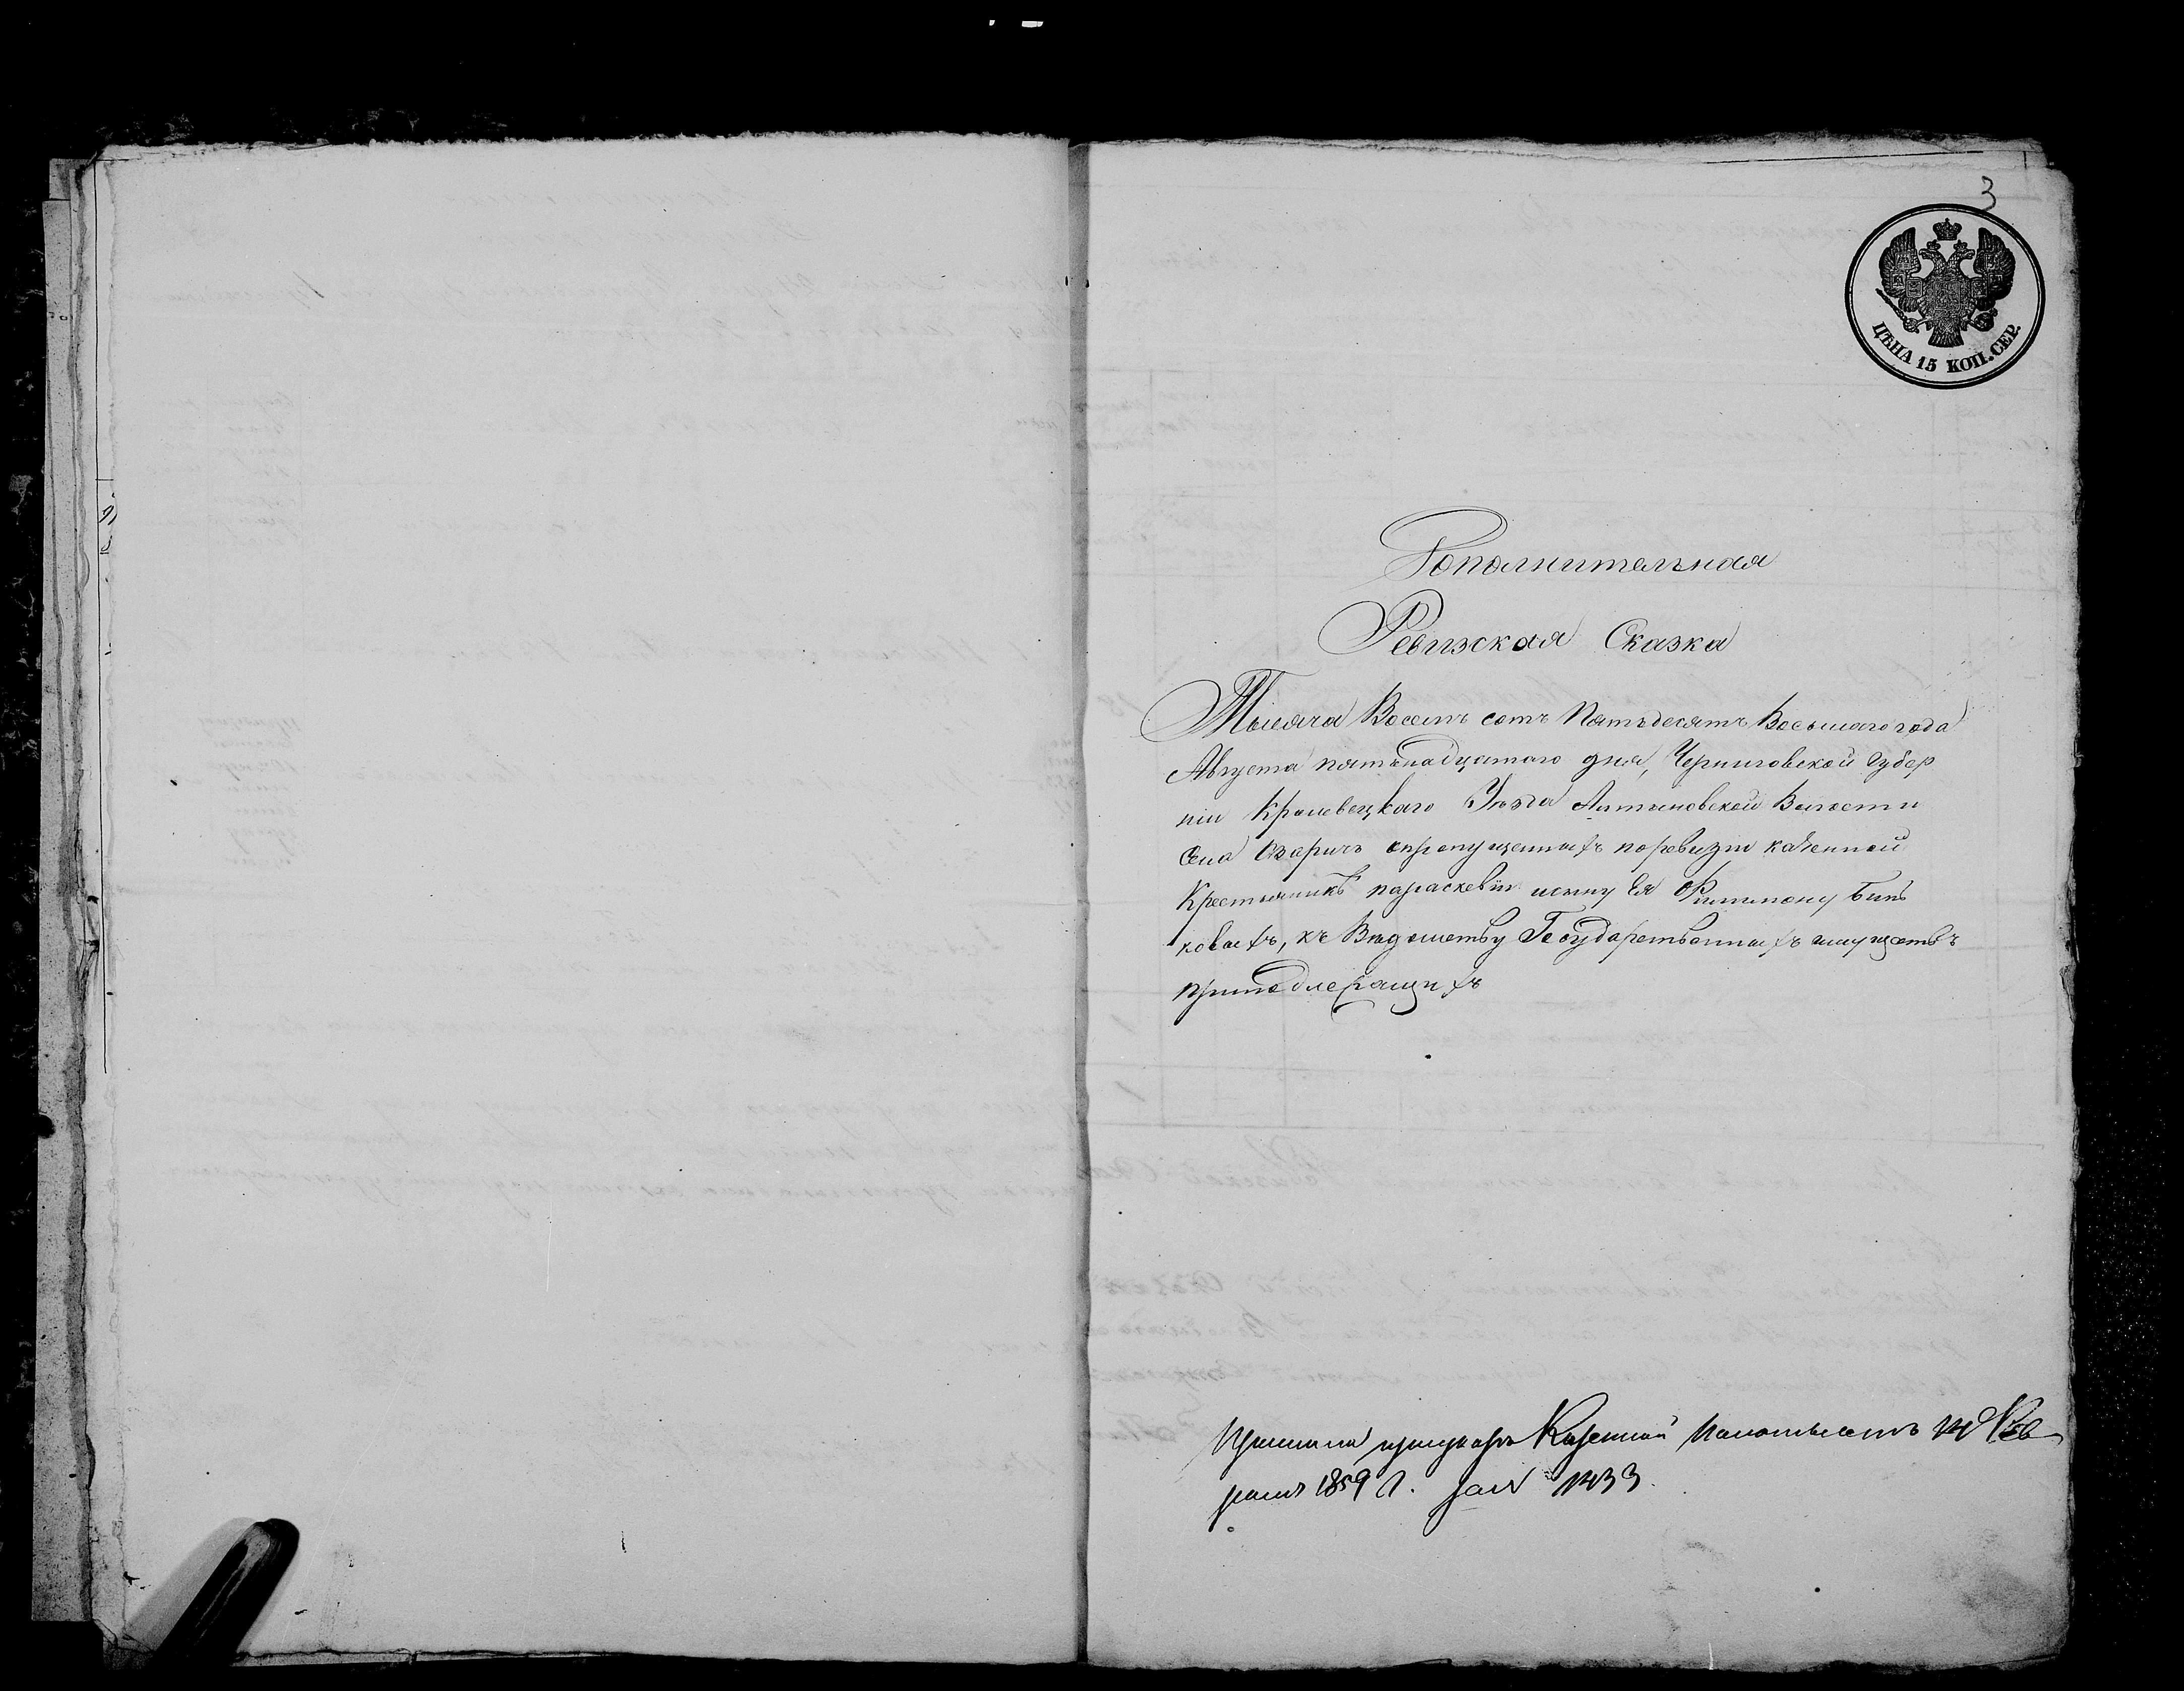 3
ЦѢНА 15 КОП. СЕР.
Дополнительная
Ревизская Сказка
Тысяча Восемь сотъ Пятьдесятъ Восьмаго года
Августа пятьнадцатого дня, Черниговской Губер
ніи Кролевецкаго Уѣзда Алтыновской Волости
Села Озаричъ о пропущенныхъ по ревизіи казенной
Крестьянкѣ параскевіи и сыну Ея Филимону
ковыхъ, къ Вѣдомству Государственныхъ имуществъ
принадлежащихъ
Казенной 14 Фев
раля 1859 г. 1433.